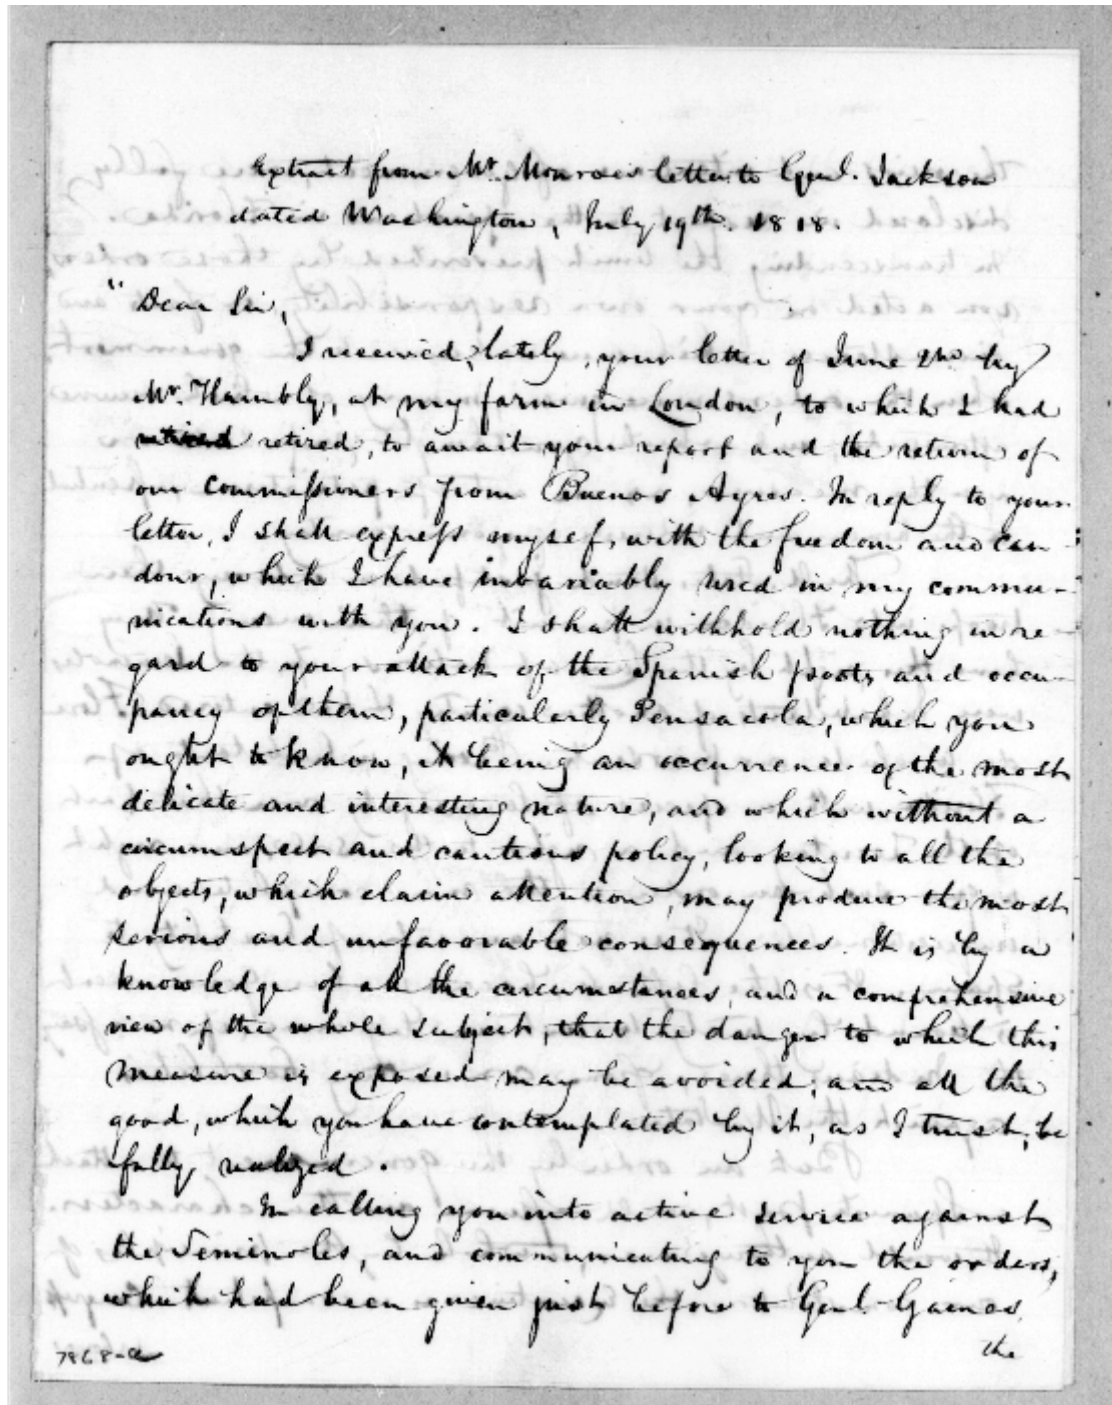 Extract from Mr. Monroe's letter to Genl. Jackson
dated Washington, July 19th. 1818.
" Dear Sir,
I received, lately, your letter of June 2nd. by
Mr. Hambly, at my farm in Loudon, to which I had
retired, to await your report and the return of
our Commissioners from Buenos Ayres. In reply to your
letter, I shall express myself, with the freedom and can-
dour, which I have invariably used in my commu-
nications with you. I shall withhold nothing in re-
gard to your attack of the Spanish posts, and occu-
pancy of them, particularly Pensacola, which you
ought to know, it being an occurrence of the most
delicate and interesting nature, and which without a
circumspect and cautious policy, looking to all the
objects, which claim attention, may produce the most
serious and unfavorable consequences. It is by a
knowledge of all the circumstances, and a comprehensive
view of the whole subject, that the danger to which this
measure is exposed may be avoided, and all the
good, which you have contemplated by it, as I trust, be
fully realized.
In calling you into active service against
the Seminoles, and communicating to you the orders,
which had been given just before to Genl. Gaines,
the
7968-a